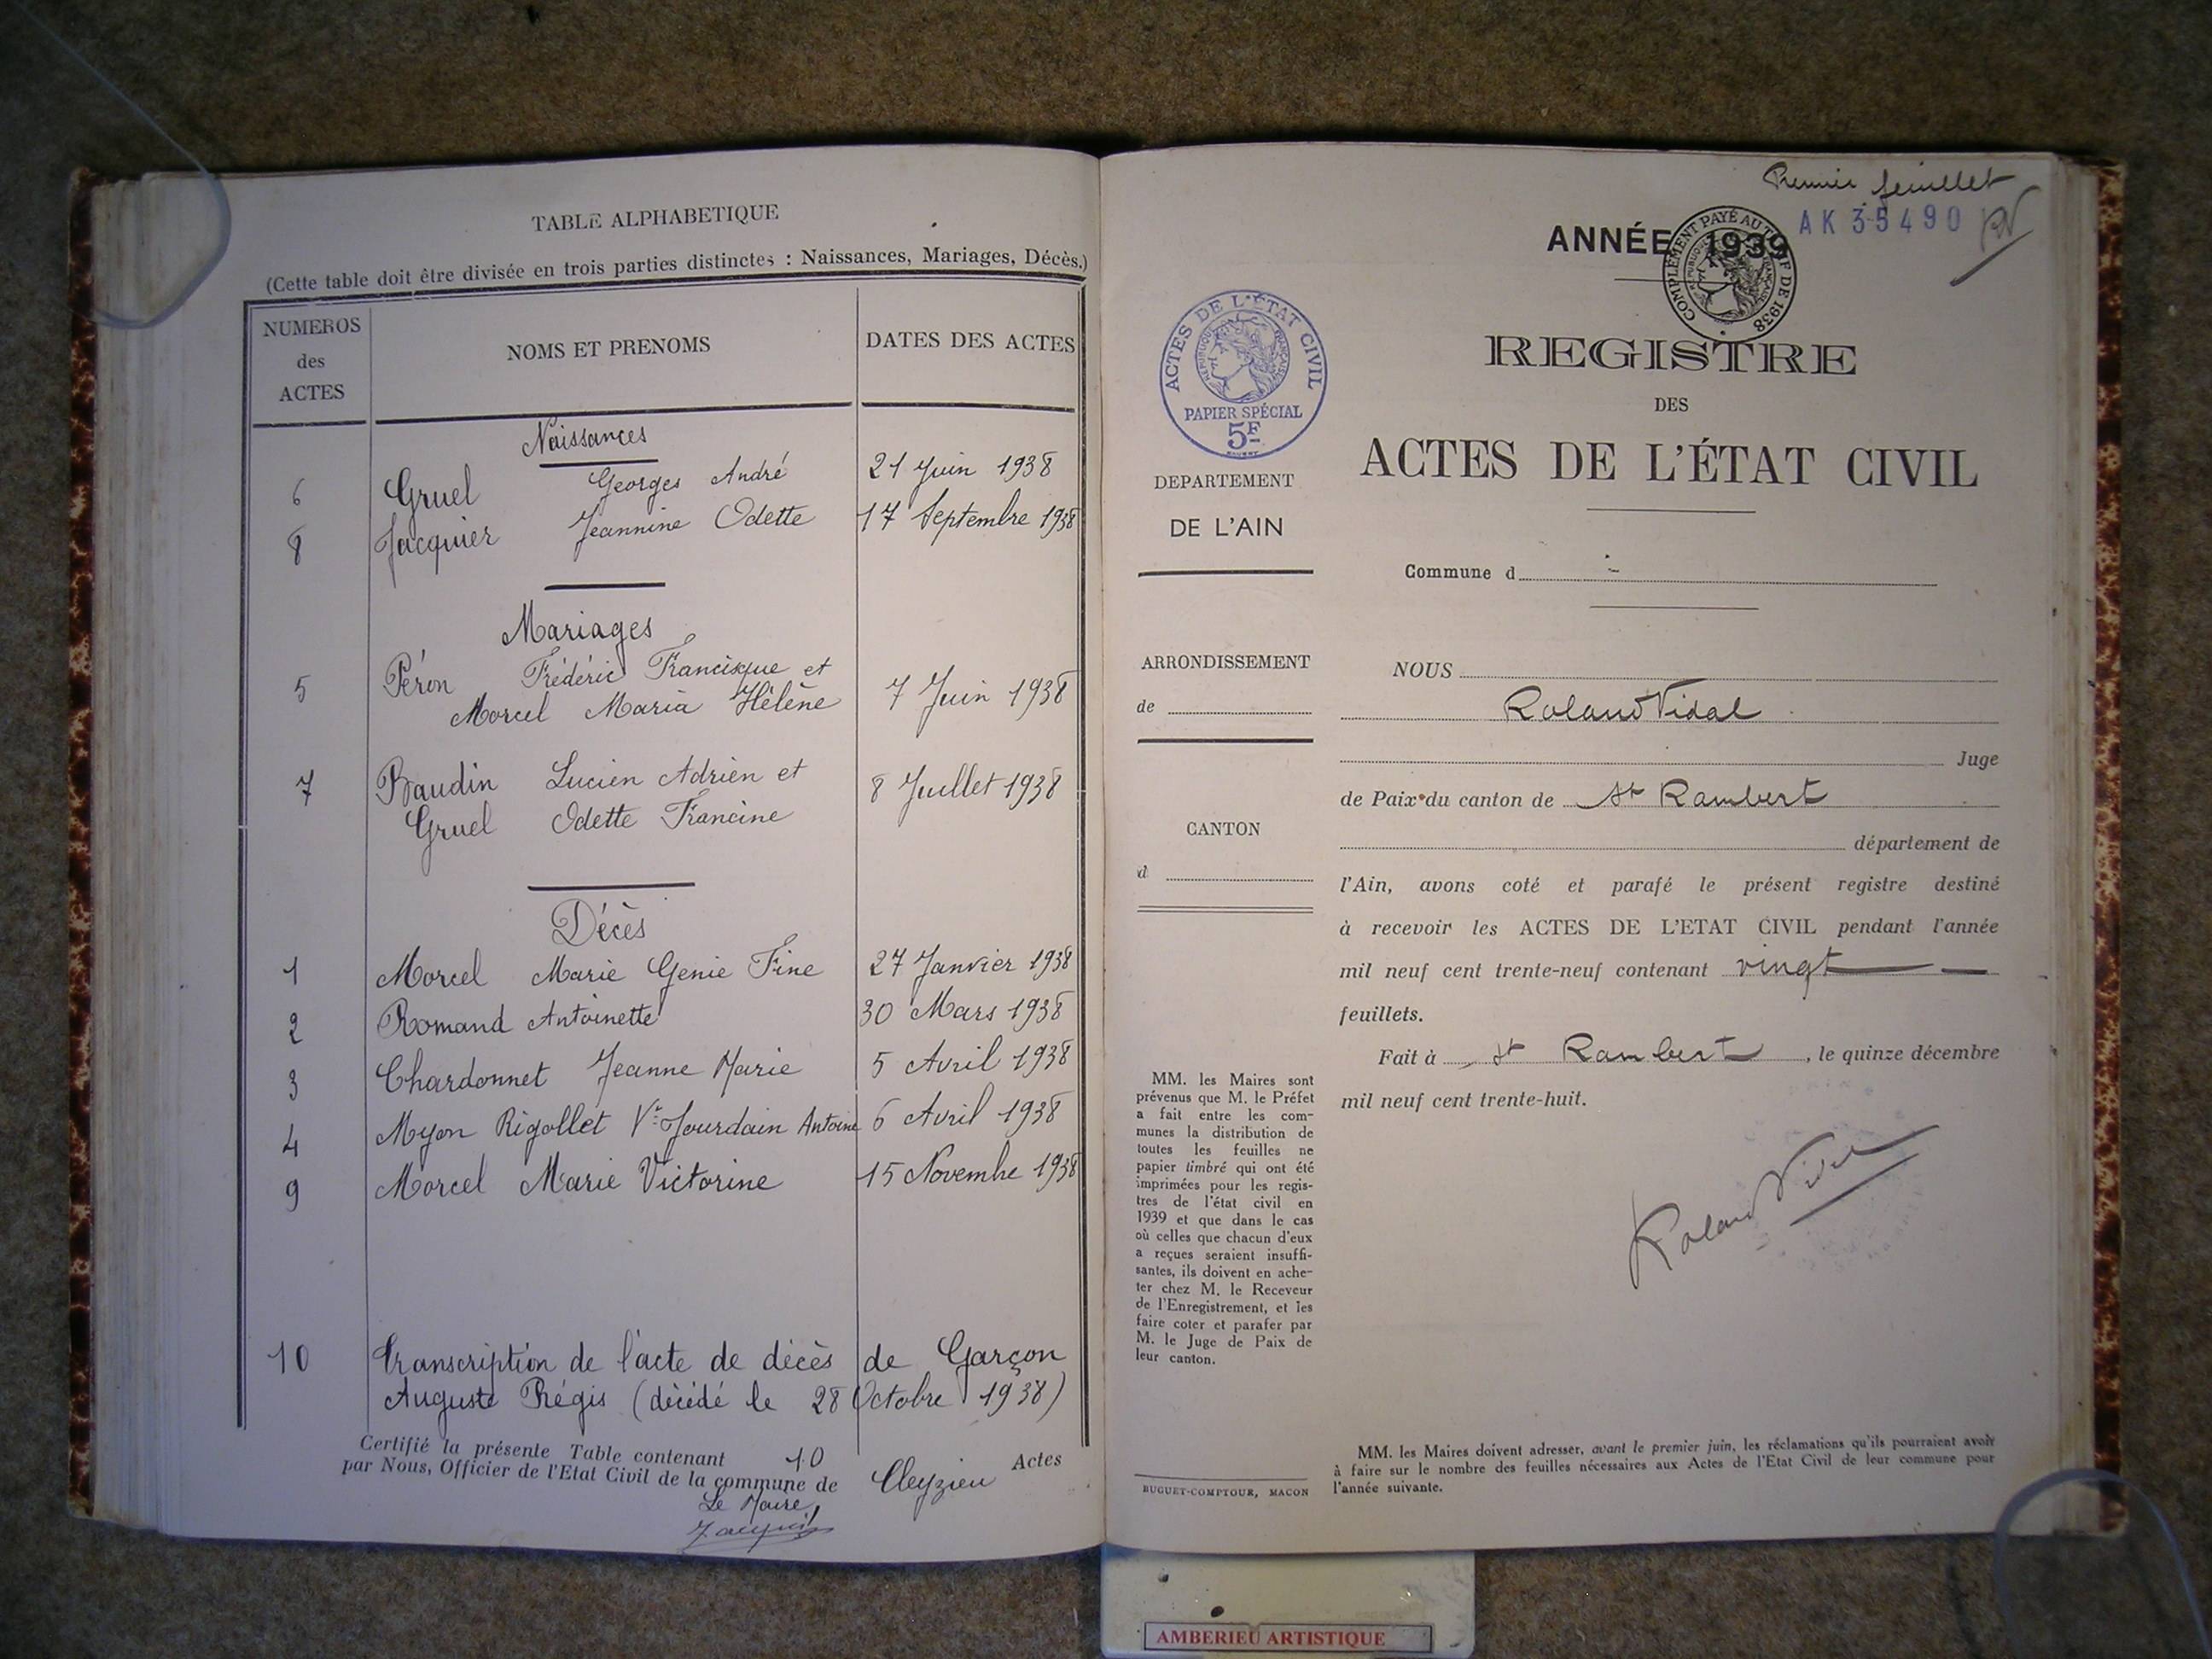 TABLE ALPHABETIQUE
(Cette table doit être divisée en trois parties distinctes : Naissances, Mariages, Décès.)
NUMEROS des ACTES NOMS ET PRENOMS DATES DES ACTES
Naissances
6 Gruel Georges André 21 Juin 1938
8 Jacquier Jeannine Odette 17 Septembre 1938
Mariages
5 Péron Frédéric Francisque et 7 Juin 1938
Morcel Maria Hélène
7 Baudin Lucien Adrien et 8 Juillet 1938
Gruel Odette Francine
Décès
1 Morcel Marie Génie Fine 27 Janvier 1938
2 Romand Antoinette 30 Mars 1938
3 Chardonnet Jeanne Marie 5 Avril 1938
4 Myon Rigollet Vve Jourdain Antoine 6 Avril 1938
9 Morcel Marie Victorine 15 Novembre 1938
10 Transcription de l'acte de décès de Garçon
Auguste Régis (décédé le 28 Octobre 1938)
Certifié la présente Table contenant 10 Actes
par Nous, Officier de l'Etat Civil de la commune de Cleyzieu
Le Maire,
Premier feuillet
AK 35490
ANNÉE 1939
COMPLÉMENT PAYÉ AU TARIF DE 1938
RÉPUBLIQUE FRANÇAISE
REGISTRE
DES
ACTES DE L'ÉTAT CIVIL
ACTES DE L'ÉTAT CIVIL
RÉPUBLIQUE FRANÇAISE
PAPIER SPÉCIAL
5F
DEPARTEMENT
DE L'AIN
ARRONDISSEMENT
de
CANTON
d
MM. les Maires sont
prévenus que M. le Préfet
a fait entre les com-
munes la distribution de
toutes les feuilles ne
papier timbré qui ont été
imprimées pour les regis-
tres de l'état civil en
1939 et que dans le cas
où celles que chacun d'eux
a reçues seraient insuffi-
santes, ils doivent en ache-
ter chez M. le Receveur
de l'Enregistrement, et les
faire coter et parafer par
M. le Juge de Paix de
leur canton.
BUGUET-COMPTOUR, MACON
Commune d
NOUS
Roland Vidal
Juge
de Paix du canton de St Rambert
département de
l'Ain, avons coté et parafé le présent registre destiné
à recevoir les ACTES DE L'ETAT CIVIL pendant l'année
mil neuf cent trente-neuf contenant vingt
feuillets.
Fait à St Rambert, le quinze décembre
mil neuf cent trente-huit.
Roland Vidal
MM. les Maires doivent adresser, avant le premier juin, les réclamations qu'ils pourraient avoir
à faire sur le nombre des feuilles nécessaires aux Actes de l'Etat Civil de leur commune pour
l'année suivante.
AMBERIEU ARTISTIQUE